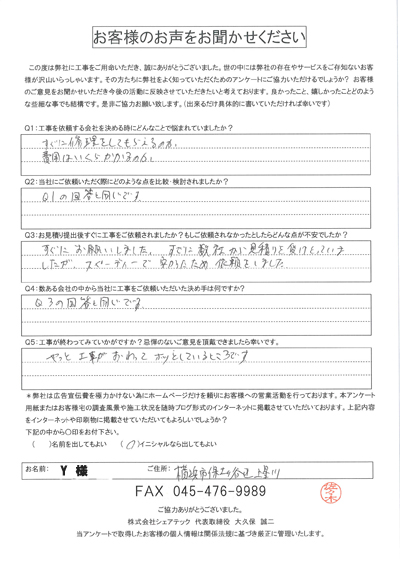 お客様のお声をお聞かせください
この度は弊社に工事をご用命いただき、誠にありがとうございました。世の中には弊社の存在やサービスをご存知ないお客
様が沢山いらっしゃいます。その方たちに弊社をよく知っていただくためのアンケートにご協力いただけるでしょうか? お客様
のご意見をお聞かせいただき今後の活動に反映させていただきたいと考えております。良かったこと、嬉しかったことどのよう
な些細な事でも結構です。是非ご協力お願い致します。(出来るだけ具体的に書いていただければ幸いです)
Q1:工事を依頼する会社を決める時にどんなことで悩まれていましたか?
すぐに修理をしてもらえるのか、
費用はいくらかかるのか、
Q2:当社にご依頼いただく際にどのような点を比較・検討されましたか?
Q1の回答と同いです
Q3:お見積り提出後すぐに工事をご依頼されましたか?もしご依頼されなかったとしたらどんな点が不安でしたか?
すぐにお願いしました。すぐに数社から見積りを受けとっていま
したが、スピーディーで安かったため依頼をしました
Q4:数ある会社の中から当社に工事をご依頼いただいた決め手は何ですか?
Q3の回答と同いです
Q5:工事が終わってみていかがですか?忌憚のないご意見を頂戴できましたら幸いです。
やっと工事がおわってホッとしているところです
*弊社は広告宣伝費を極力かけない為にホームページだけを頼りにお客様への営業活動を行っております。本アンケート
用紙またはお客様宅の調査風景や施工状況を随時ブログ形式のインターネットに掲載させていただいております。上記内容
をインターネットや印刷物に掲載させていただいてもよろしいでしょうか?
下記の中から〇印をお付下さい。
( )名前を出してもよい (〇)イニシャルなら出してもよい
お名前: Y 様 ご住所: 横浜市保土ヶ谷区上星川
FAX 045-476-9989
佐々木
ご協力ありがとうございました。
株式会社シェアテック 代表取締役 大久保 誠二
当アンケートで取得したお客様の個人情報は関係法規に基づき厳正に管理いたします。